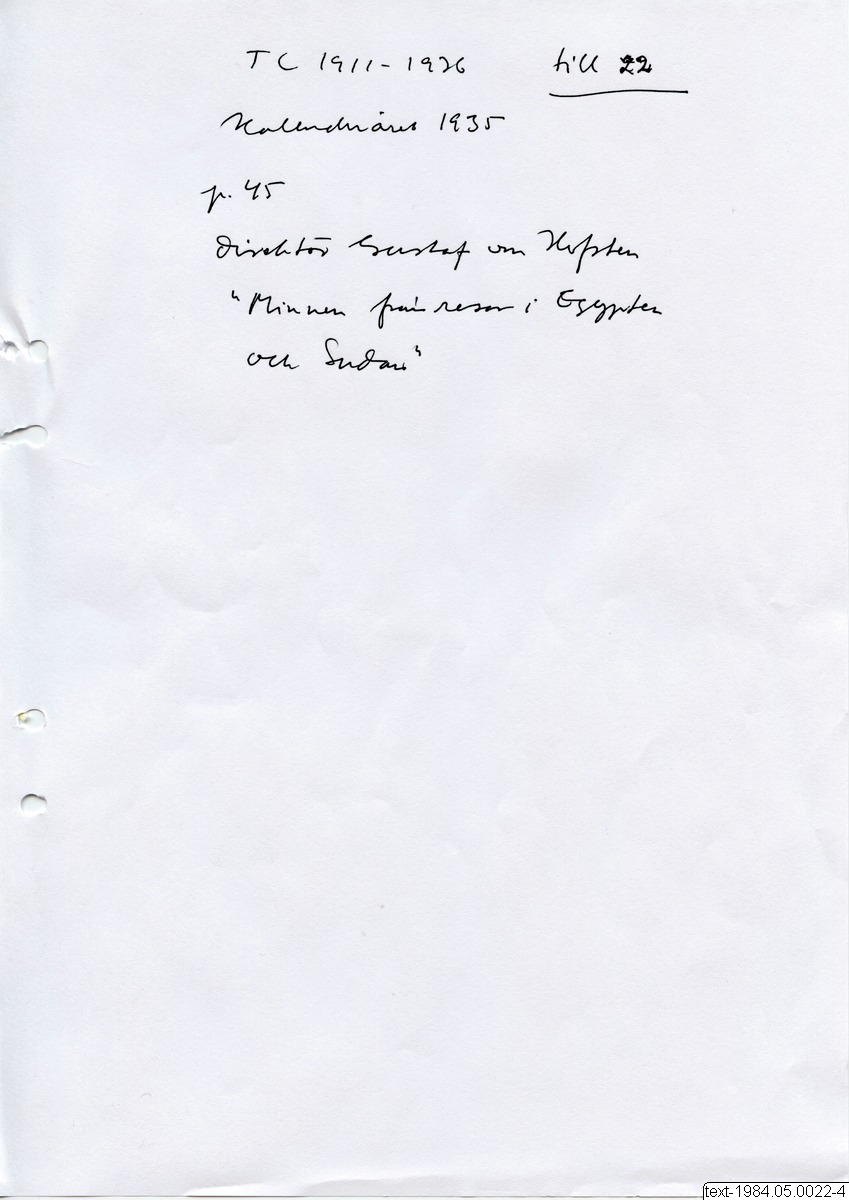 TC 1911-1936 till 22
Kalenderåret 1935
p. 45
Direktör Gustaf von Hofsten
"Minnen från resor i Egypten
och Sudan"
text-1984.05.0022-4